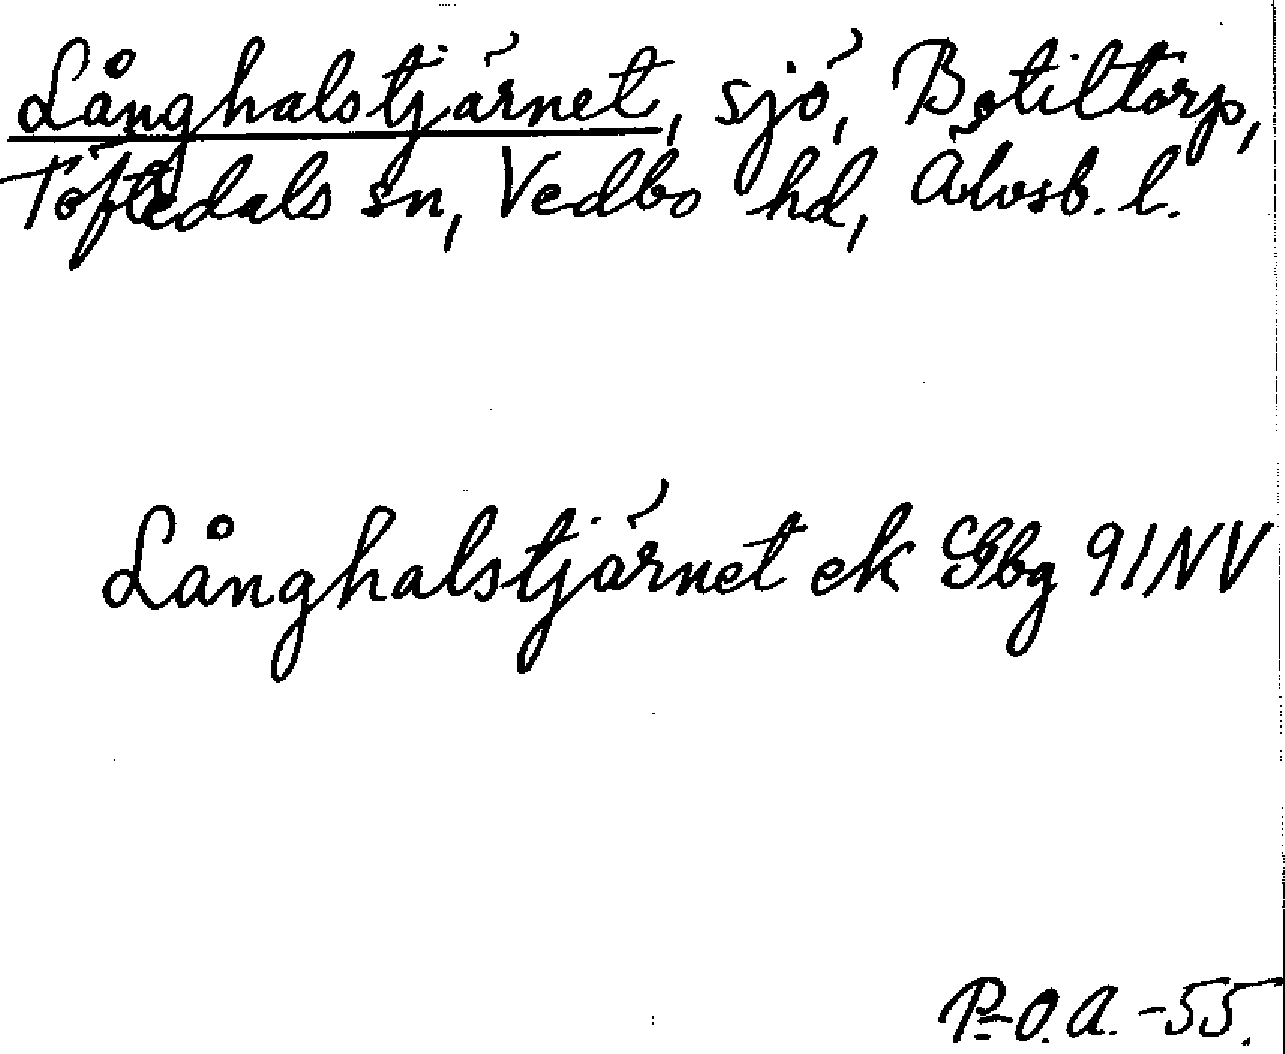 Långhalstjärnet, sjö, Botiltorp,
Töftedals sn, Vedbo hd, Älvsb. l.
Långhalstjärnet ek Gbg 91NV
P-O.A. -55.